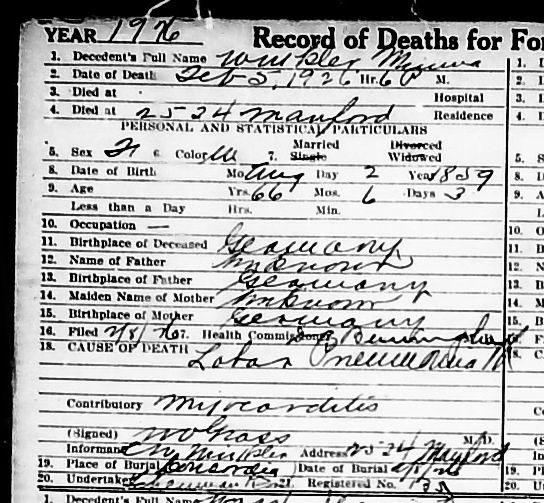 YEAR 1926 Record of Deaths for For
1. Decedent's Full Name Winkler, Minna
2. Date of Death Feb 5, 1926 Hr. 6 P M.
3. Died at Hospital
4. Died at 2524 Maxford Residence
PERSONAL AND STATISTICAL PARTICULARS
5. Sex F 6. Color W 7. Married Single Divorced Widowed
8. Date of Birth Mo. Aug Day 2 Year 1859
9. Age Yrs. 66 Mos. 6 Days 3
Less than a Day Hrs. Min.
10. Occupation —
11. Birthplace of Deceased Germany
12. Name of Father Unknown
13. Birthplace of Father Germany
14. Maiden Name of Mother Unknown
15. Birthplace of Mother Germany
16. Filed 2/8/26 17. Health Commissioner
18. CAUSE OF DEATH Lobar Pneumonia
Contributory Myocarditis
(Signed) M.D.
Informant Winkler Address 2524 Maxford
19. Place of Burial Concordia Date of Burial
20. Undertaker 21. Registered No.
1. Decedent's Full Name